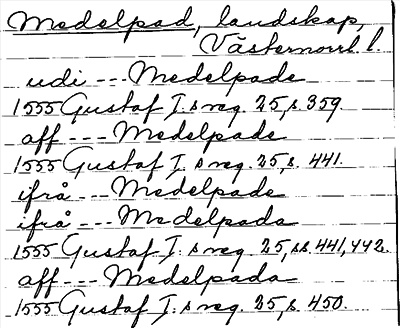 Medelpad, landskap,
Västernorrl. l.
udi --- Medelpade
1555 Gustaf I:s reg. 25, s. 359.
aff --- Medelpade
1555 Gustaf I:s reg. 25, s. 441.
ifrå --- Medelpade
ifrå --- Medelpada
1555 Gustaf I:s reg. 25, ss. 441, 442.
aff --- Medelpada
1555 Gustaf I:s reg. 25, s. 450.